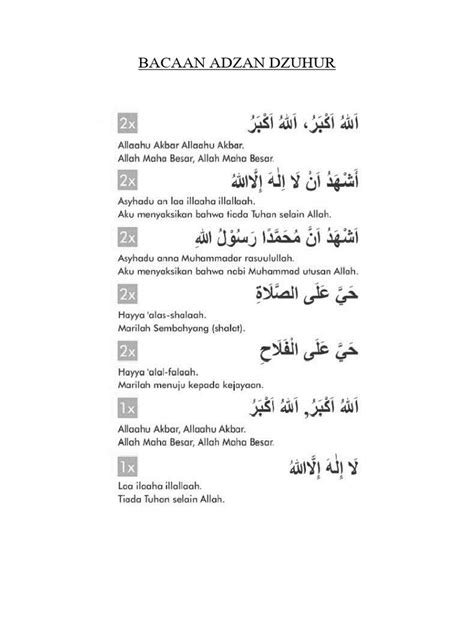 BACAAN ADZAN DZUHUR
2x
اَللهُ اَكْبَرُ، اَللهُ اَكْبَرُ
Allaahu Akbar Allaahu Akbar.
Allah Maha Besar, Allah Maha Besar.
2x
أَشْهَدُ اَنْ لَا إِلٰهَ إِلَّااللهُ
Asyhadu an laa illaaha illallaah.
Aku menyaksikan bahwa tiada Tuhan selain Allah.
2x
اَشْهَدُ اَنَّ مُحَمَّدًا رَسُوْلُ اللهِ
Asyhadu anna Muhammadar rasuulullah.
Aku menyaksikan bahwa nabi Muhammad utusan Allah.
2x
حَيَّ عَلَى الصَّلَاةِ
Hayya 'alas-shalaah.
Marilah Sembahyang (shalat).
2x
حَيَّ عَلَى الْفَلَاحِ
Hayya 'alal-falaah.
Marilah menuju kepada kejayaan.
1x
اَللهُ اَكْبَرُ, اَللهُ اَكْبَرُ
Allaahu Akbar, Allaahu Akbar.
Allah Maha Besar, Allah Maha Besar.
1x
لَا إِلٰهَ إِلَّااللهُ
Laa ilaaha illallaah.
Tiada Tuhan selain Allah.